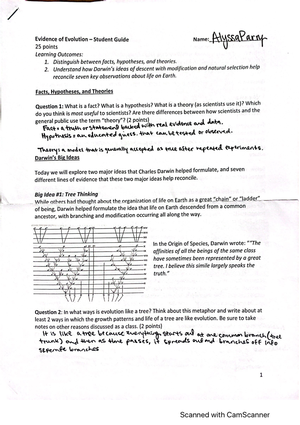 Evidence of Evolution – Student Guide Name: Alyssa Parry
25 points
Learning Outcomes:
1. Distinguish between facts, hypotheses, and theories.
2. Understand how Darwin's ideas of descent with modification and natural selection help
reconcile seven key observations about life on Earth.
Facts, Hypotheses, and Theories
Question 1: What is a fact? What is a hypothesis? What is a theory (as scientists use it)? Which
do you think is most useful to scientists? Are there differences between how scientists and the
general public use the term "theory"? (2 points)
Fact = a truth or statement backed with real evidence and data.
Hypothesis = an educated guess. that can be tested or observed.
Theory = a model that is generally accepted as true after repeated experiments.
Darwin's Big Ideas
Today we will explore two major ideas that Charles Darwin helped formulate, and seven
different lines of evidence that these two major ideas help reconcile.
Big Idea #1: Tree Thinking
While others had thought about the organization of life on Earth as a great "chain" or "ladder"
of being, Darwin helped formulate the idea that life on Earth descended from a common
ancestor, with branching and modification occurring all along the way.
In the Origin of Species, Darwin wrote: "“The
affinities of all the beings of the same class
have sometimes been represented by a great
tree. I believe this simile largely speaks the
truth.”
Question 2: In what ways is evolution like a tree? Think about this metaphor and write about at
least 2 ways in which the growth patterns and life of a tree are like evolution. Be sure to take
notes on other reasons discussed as a class. (2 points)
It is like a tree because everything starts out at one common branch (tree
trunk) and then as time passes, it spreads out and branches off into
seperate branches
1
Scanned with CamScanner